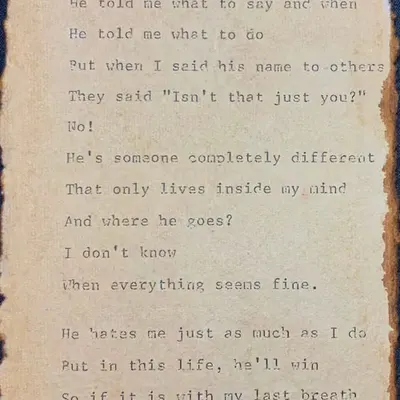 He told me what to say and when
He told me what to do
But when I said his name to others
They said "Isn't that just you?"
No!
He's someone completely different
That only lives inside my mind
And where he goes?
I don't know
When everything seems fine.
He hates me just as much as I do
But in this life, he'll win
So if it is with my last breath